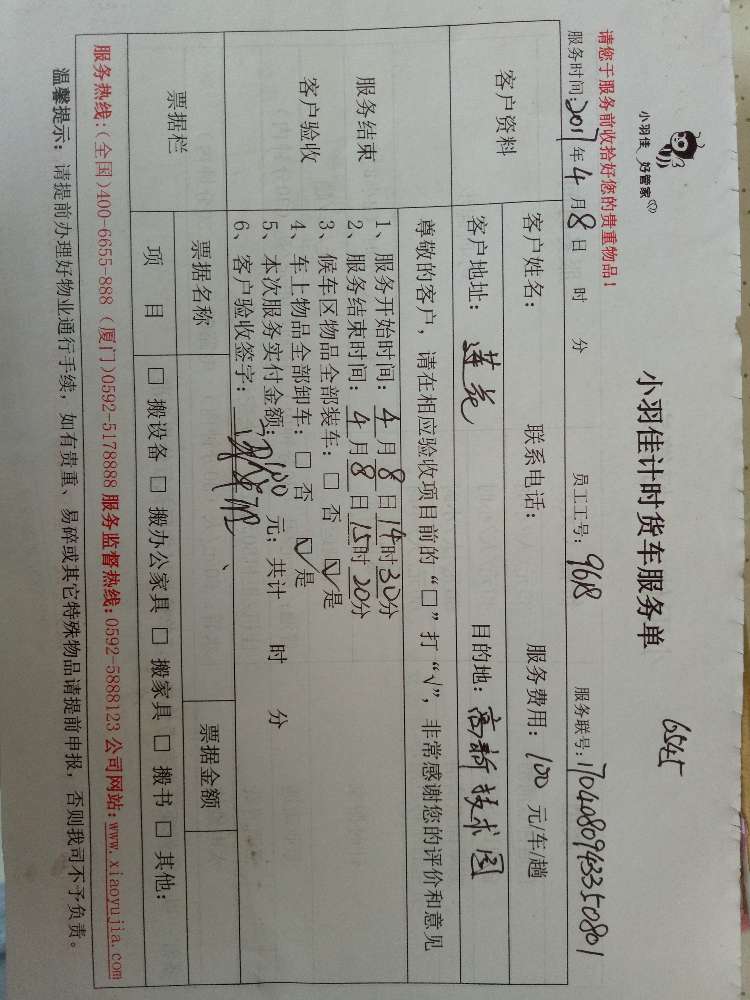 小羽佳 好管家
小羽佳计时货车服务单
6545
请您于服务前收拾好您的贵重物品！
服务时间：2017年4月8日 时 分 员工工号：9618 服务联号：1704080943350801
客户资料
客户姓名： 联系电话： 服务费用：100元/车/趟
客户地址：莲花 目的地：高新技术园
服务结束
客户验收
尊敬的客户，请在相应验收项目前的“□”打“√”，非常感谢您的评价和意见
1、服务开始时间：4月8日14时30分
2、服务结束时间：4月8日15时20分
3、候车区物品全部装车：□ 否 ☑是
4、车上物品全部卸车：□ 否 ☑是
5、本次服务实付金额：100元；共计 时 分
6、客户验收签字：
票据栏
票据名称 票据金额
项 目 □ 搬设备 □ 搬办公家具 □ 搬家具 □ 搬书 □ 其他：
服务热线：（全国）400-6655-888（厦门）0592-5178888 服务监督热线：0592-5888123 公司网站：www.xiaoyujia.com
温馨提示：请提前办理好物业通行手续，如有贵重、易碎或其它特殊物品请提前申报，否则我司不予负责。